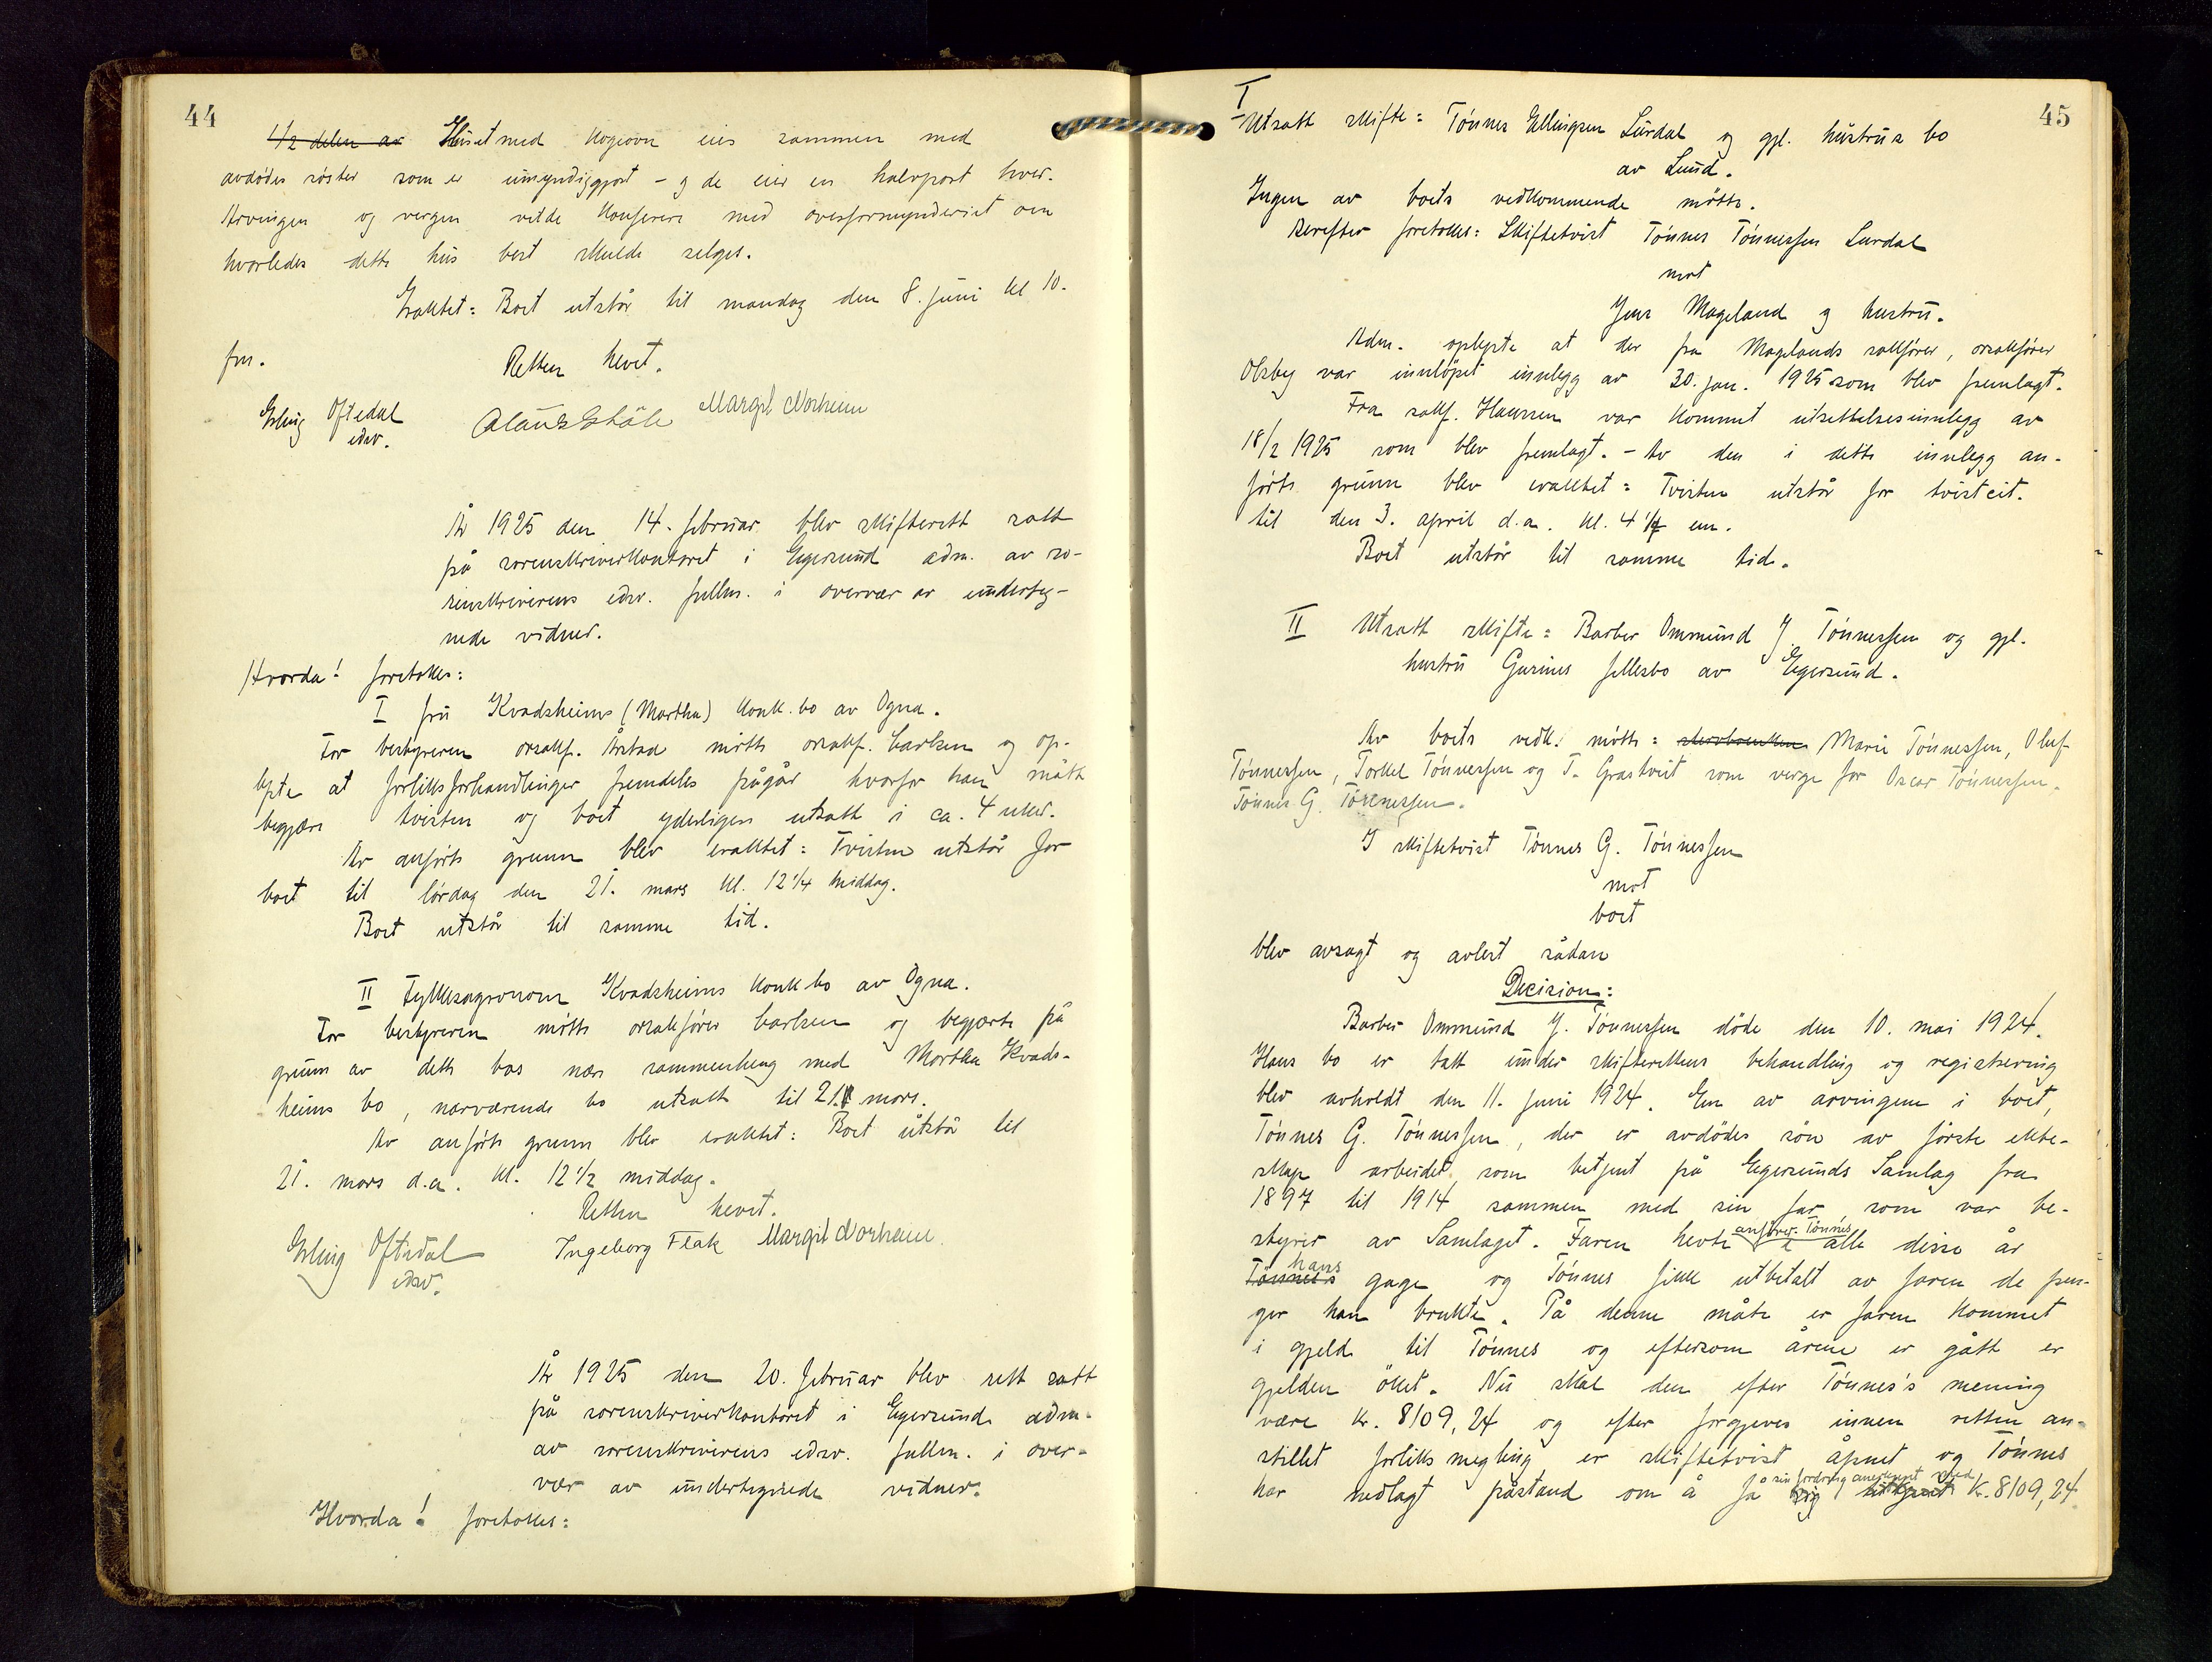 44
1/2 delen av Huset med kogeovn eies sammen med
avdødes søster som er umyndiggjort - og de eier en halvpart hver.
Arvingen og vergen vilde konferere med overformynderiet om
hvorledes dette hus best skulde selges.
Eraktet: Boet utstår til mandag den 8. juni kl 10.
fm.
Retten hevet.
Erling Oftedal
edsv.
Margit Norheim
År 1925 den 14. februar blev skifterett satt
på sorenskriverkontoret i Egersund adm. av so-
renskriverens edsv. fullm. i overvær av underteg-
nede vidner.
Hvorda! foretokes:
I fru Kvadsheims (Martha) konk.bo av Ogna.
For bestyreren orsakf. Årstad møtte orsakf. Carlsen og op-
lyste at forliksforhandlinger fremdeles pågår hvorfor han måtte
begjære tvisten og boet yderligere utsatt i ca. 4 uker.
Av anførte grunn blev eraktet: Tvisten utstår for
boet til lørdag den 21. mars kl. 12 1/4 middag.
Boet utstår til samme tid.
II Fylkesagronom Kvadsheims konkbo av Ogna.
For bestyreren møtte orsakfører Carlsen og begjærte på
grunn av dette bos nære sammenheng med Martha Kvads-
heims bo, nærværende bo utsatt til 21. mars.
Av anførte grunn blev eraktet: Boet utstår til
21. mars d.a. kl. 12 1/2 middag.
Retten hevet.
Erling Oftedal
edsv.
Ingeborg Flak Margit Norheim
År 1925 den 20. februar blev rett satt
på sorenskriverkontoret i Egersund adm.
av sorenskriverens edsv. fullm. i over-
vær av undertegnede vidner.
Hvorda! foretokes:
45
I
Utsatt skifte: Tønnes Ellingsen Lurdal og gjl. hustrus bo
av Lund.
Ingen av boets vedkommende møtte.
Derefter foretokes: Skiftetvist Tønnes Tønnessen Lurdal
mot
Jens Mageland og hustru.
Adm. oplyste at der fra Magelands sakfører, orsakfører
Olsby var innløpet innlegg av 30. jan. 1925 som blev fremlagt.
Fra sakf. Hanssen var kommet utsettelsesinnlegg av
18/2 1925 som blev fremlagt. - Av den i dette innlegg an-
førte grunn blev eraktet: Tvisten utstår for tvisteit.
til den 3. april d.a. kl. 4 1/4 em.
Boet utstår til samme tid.
II Utsatt skifte: Barber Ommund J Tønnessen og gjl.
hustru Gurines fellesbo av Egersund.
Av boets vedk. møtte: Marie Tønnessen, Oluf
Tønnessen, Torkel Tønnessen og T. Grastveit som verge for Oscar Tønnessen.
Tønnes G. Tønnessen.
I skiftetvist Tønnes G. Tønnessen
mot
boet
blev avsagt og avlest sådan
Decision:
Barber Ommund J. Tønnessen døde den 10. mai 1924.
Hans bo er tatt under skifterettens behandling og registrering
blev avholdt den 11. juni 1924. En av arvingene i boet,
Tønnes G. Tønnessen, der er avdødes søn av første ekte-
skap arbeidet som betjent på Egersunds Samlag fra
1897 til 1914 sammen med sin far, som var be-
styrer av Samlaget. Faren hevte anfører Tønnes i alle disse år
Tønnes's hans gage og Tønnes fikk utbetalt av faren de pen-
ger han brukte. På denne måte er faren kommet
i gjeld til Tønnes og eftersom årene er gått er
gjelden øket. Nu skal den efter Tønnes's mening
være kr. 8109,24 og efter forgjeves innen retten an-
stillet forliksmegling er skiftetvist åpnet og Tønnes
har nedlagt påstand om å få sig sin fordring anerkjent med kr. 8109,24